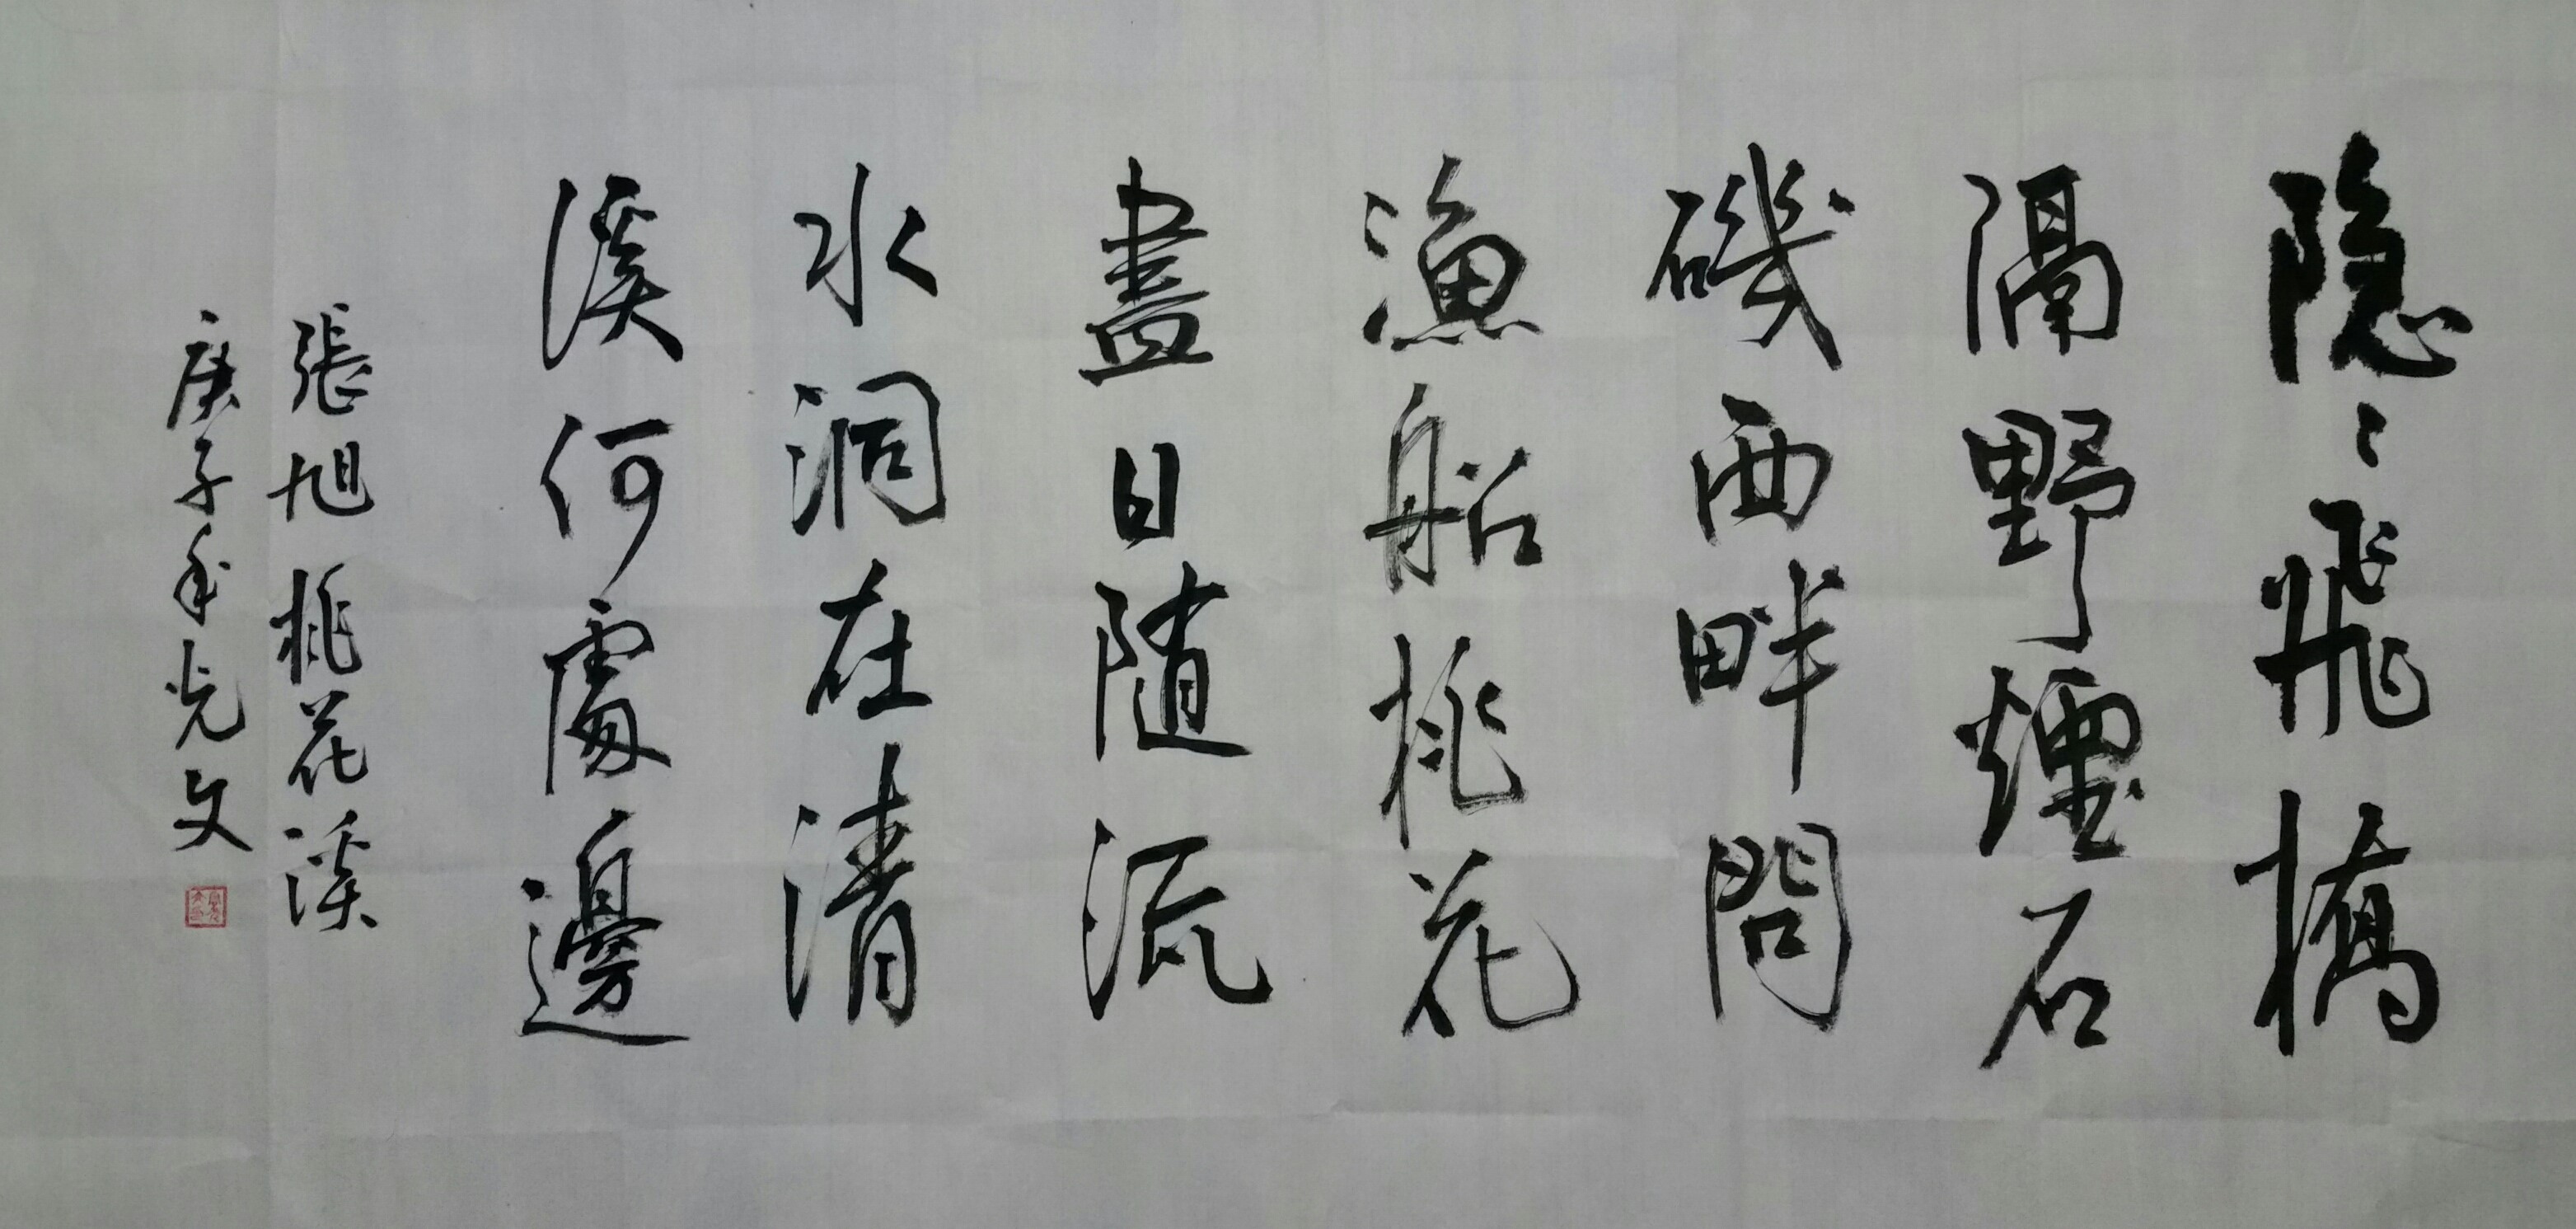 隐〻飛橋
隔野煙石
磯西畔問
漁船桃花
盡日随流
水洞在清
溪何處邊
張旭桃花溪
庚子年光文